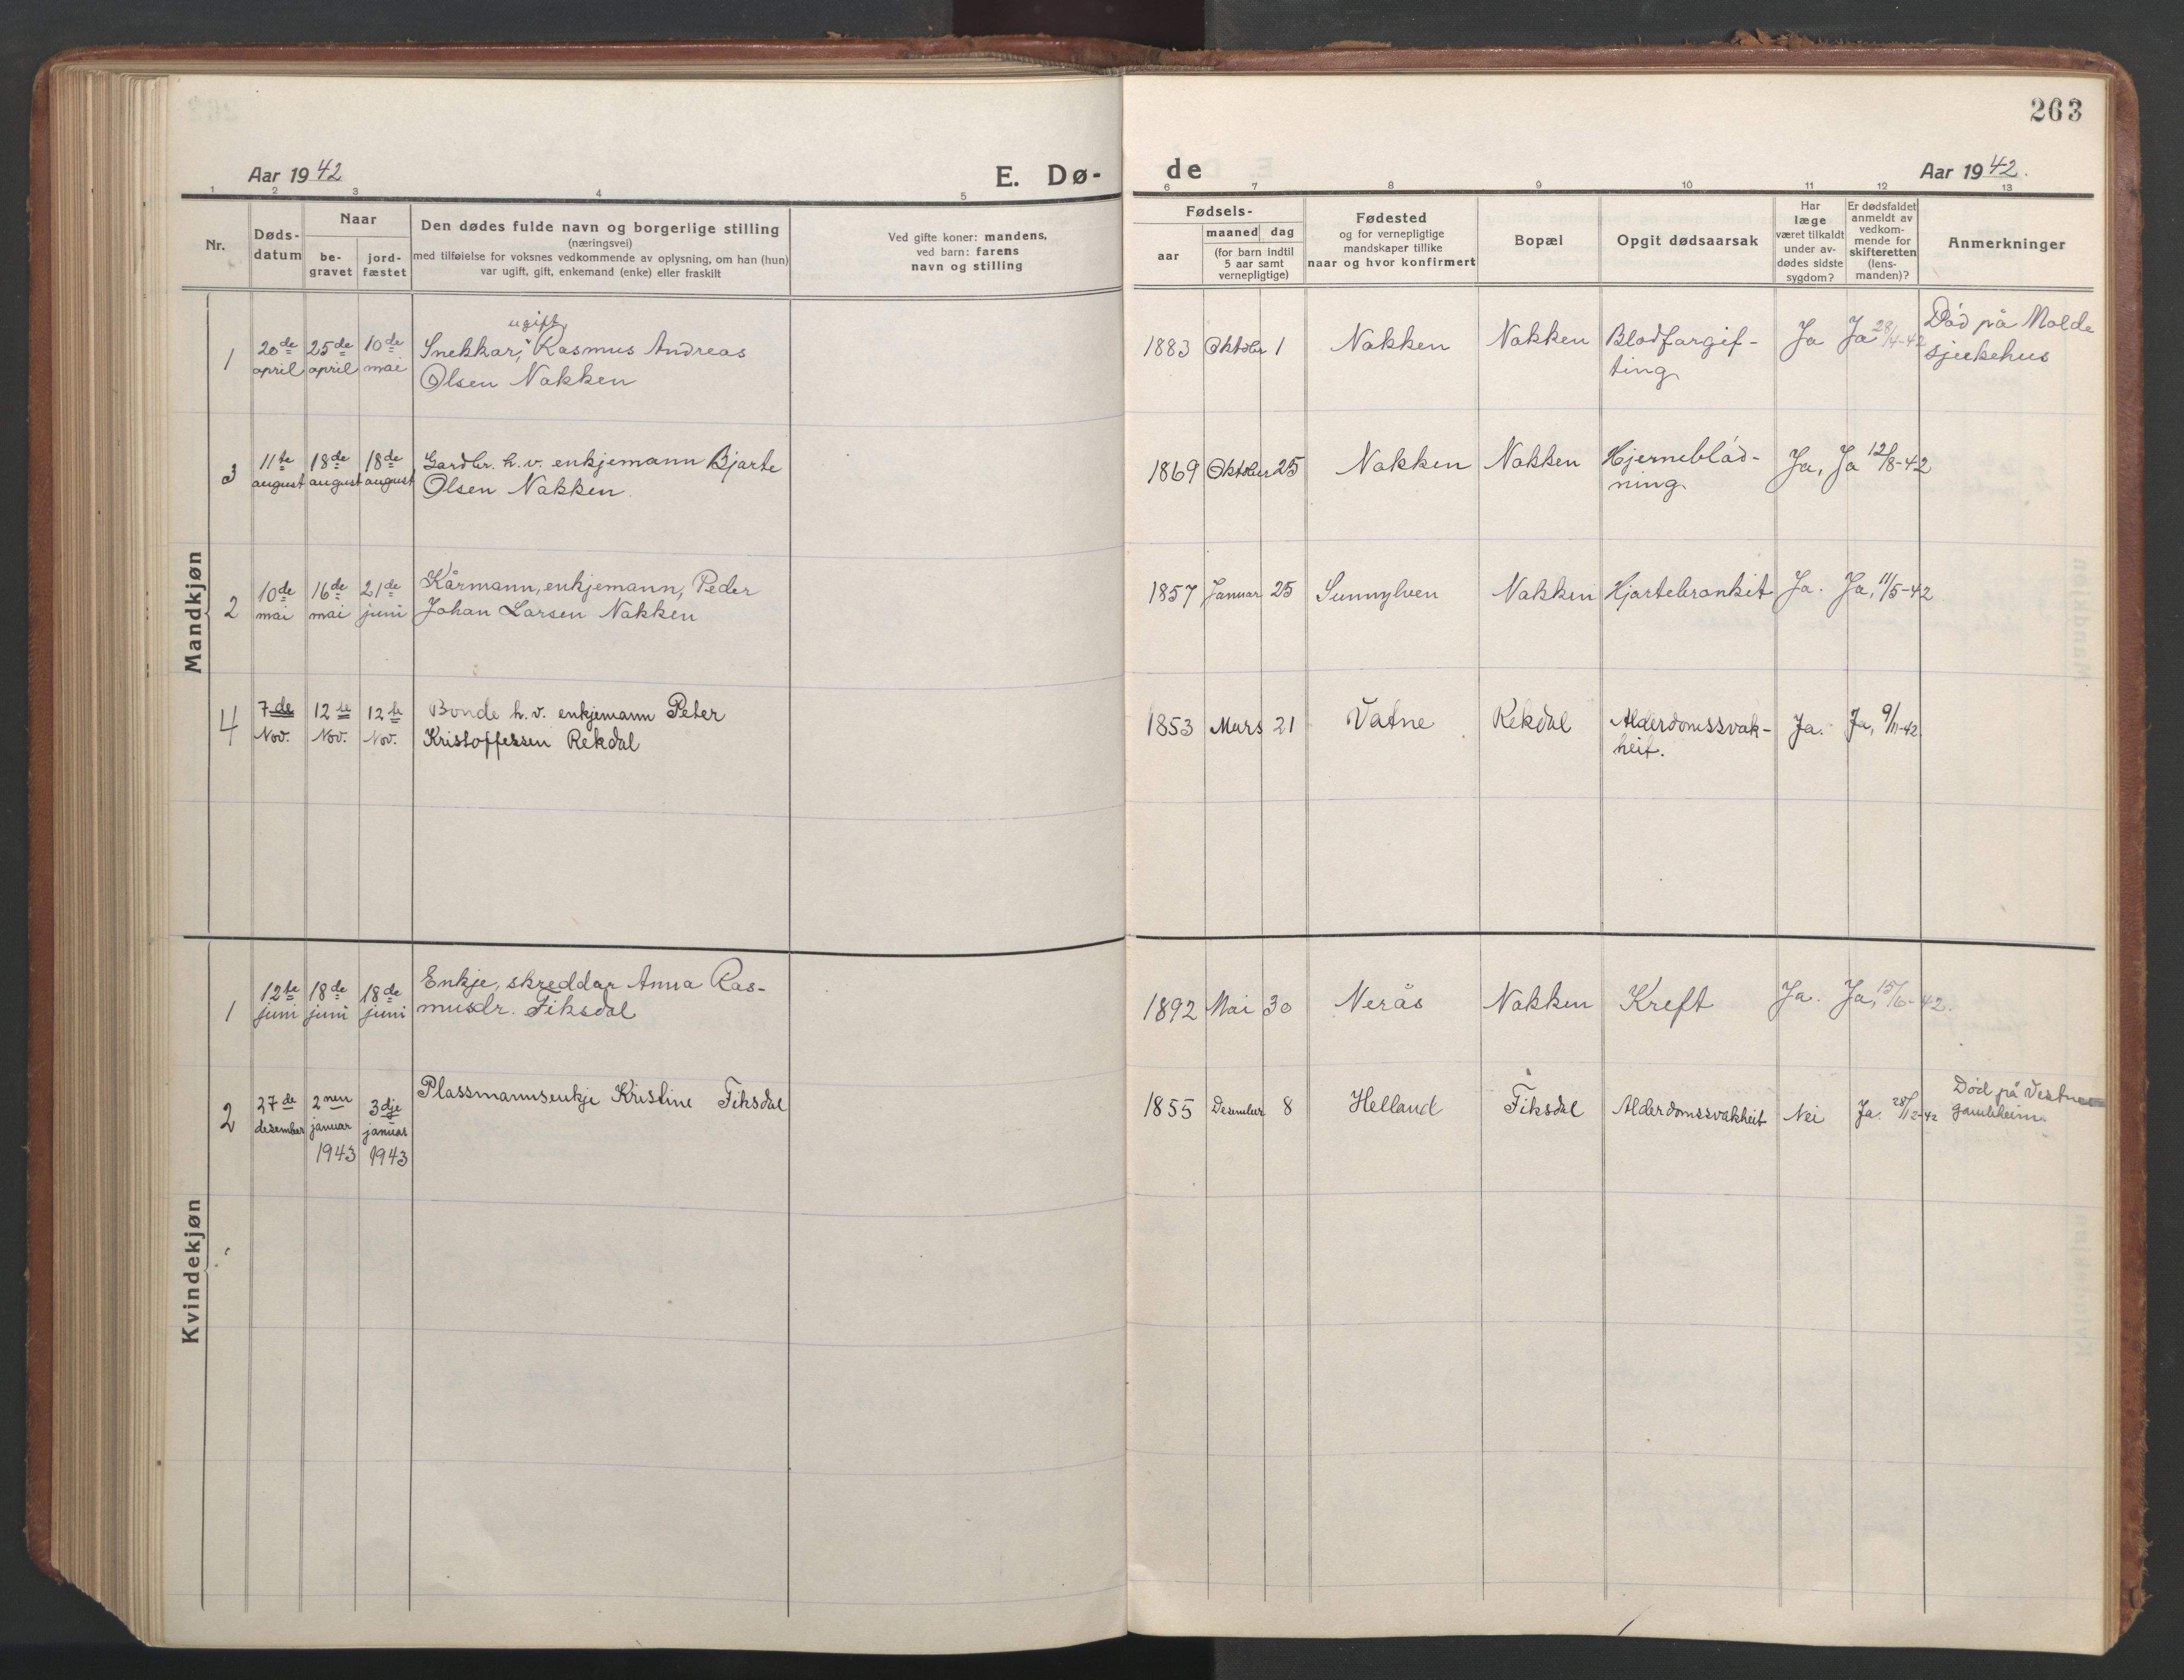 263
Aar 1942
E. Dø-
de
Aar 1942.
1 2 3 4 5 6 7 8 9 10 11 12 13
Nr.
Døds-
datum
Naar
be-
gravet
jord-
fæstet
Den dødes fulde navn og borgerlige stilling
(næringsvei)
med tilføielse for voksnes vedkommende av oplysning, om han (hun)
var ugift, gift, enkemand (enke) eller fraskilt
Ved gifte koner: mandens,
ved barn: farens
navn og stilling
Fødsels-
aar
maaned dag
(for barn indtil
5 aar samt
vernepligtige)
Fødested
og for vernepligtige
mandskaper tillike
naar og hvor konfirmert
Bopæl
Opgit dødsaarsak
Har
læge
været tilkaldt
under av-
dødes sidste
sygdom?
Er dødsfaldet
anmeldt av
vedkom-
mende for
skifteretten
(lens-
manden)?
Anmerkninger
Mandkjøn
1
20de
april
25de
april
10de
mai
ugift,
Snekkar, Rasmus Andreas
Olsen Nakken
1883 Oktober 1
Nakken
Nakken
Blodforgif-
ting
Ja
Ja 28/4-42
Død på Molde
sjukehus
3
11te
august
18de
august
18de
august
Gardbr. h.v. enkjemann Bjarte
Olsen Nakken.
1869 Oktober 25
Nakken
Nakken
Hjerneblød-
ning.
Ja,
Ja 12/8-42
2
10de
mai
16de
mai
21de
juni
Kårmann, enkjemann, Peder
Johan Larsen Nakken
1857 Januar 25
Sunnylven
Nakken
Hjartebronkit
Ja.
Ja, 11/5-42
4
7de
Nov.
12te
Nov.
12te
Nov.
Bonde h.v. enkjemann Peter
Kristoffersen Rekdal
1853 Mars 21
Vatne
Rekdal
Alderdomssvak-
heit.
Ja.
Ja, 9/11-42
Kvindekjøn
1
12te
juni
18de
juni
18de
juni
Enkje, skreddar Anna Ras-
musdr. Fiksdal
1892 Mai 30
Nerås
Nakken
Kreft
Ja.
Ja, 15/6-42.
2
27de
desember
2nen
januar
1943
3dje
januar
1943
Plassmannsenkje Kristine Fiksdal
1855 Desember 8
Helland
Fiksdal
Alderdomssvakheit
Nei
Ja. 28/12-42
Død på Vestnes
gamleheim.